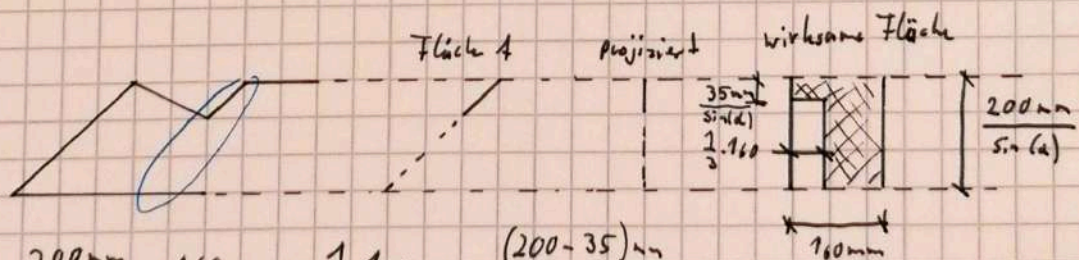 Fläche A projiziert wirksame Fläche
35mm / sin(α)
1/3 · 160
200mm / sin(α)
160mm
(200-35)mm